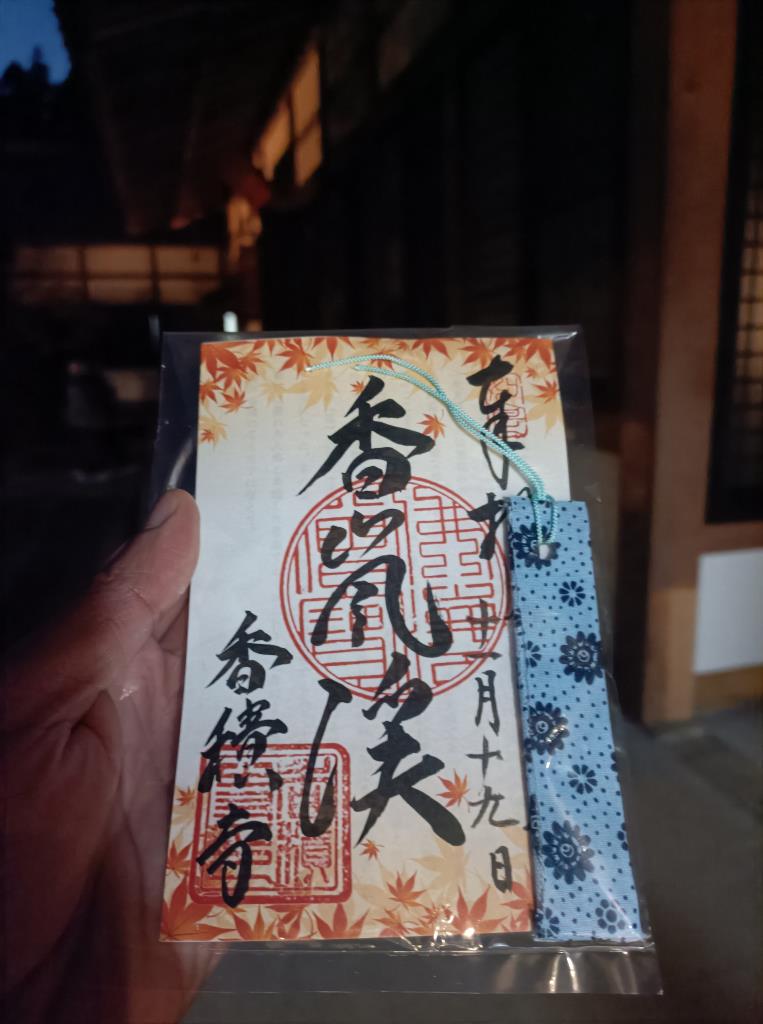 奉拝
十一月十九日
香嵐渓
香積寺